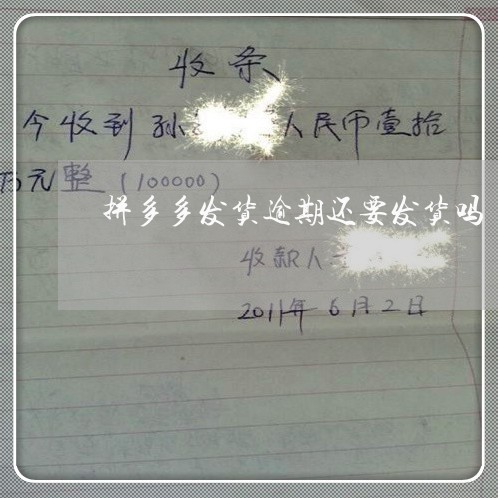 收条
今收到孙人民币壹拾
万元整(100000)
拼多多发货逾期还要发货吗
收款人
2011年6月2日